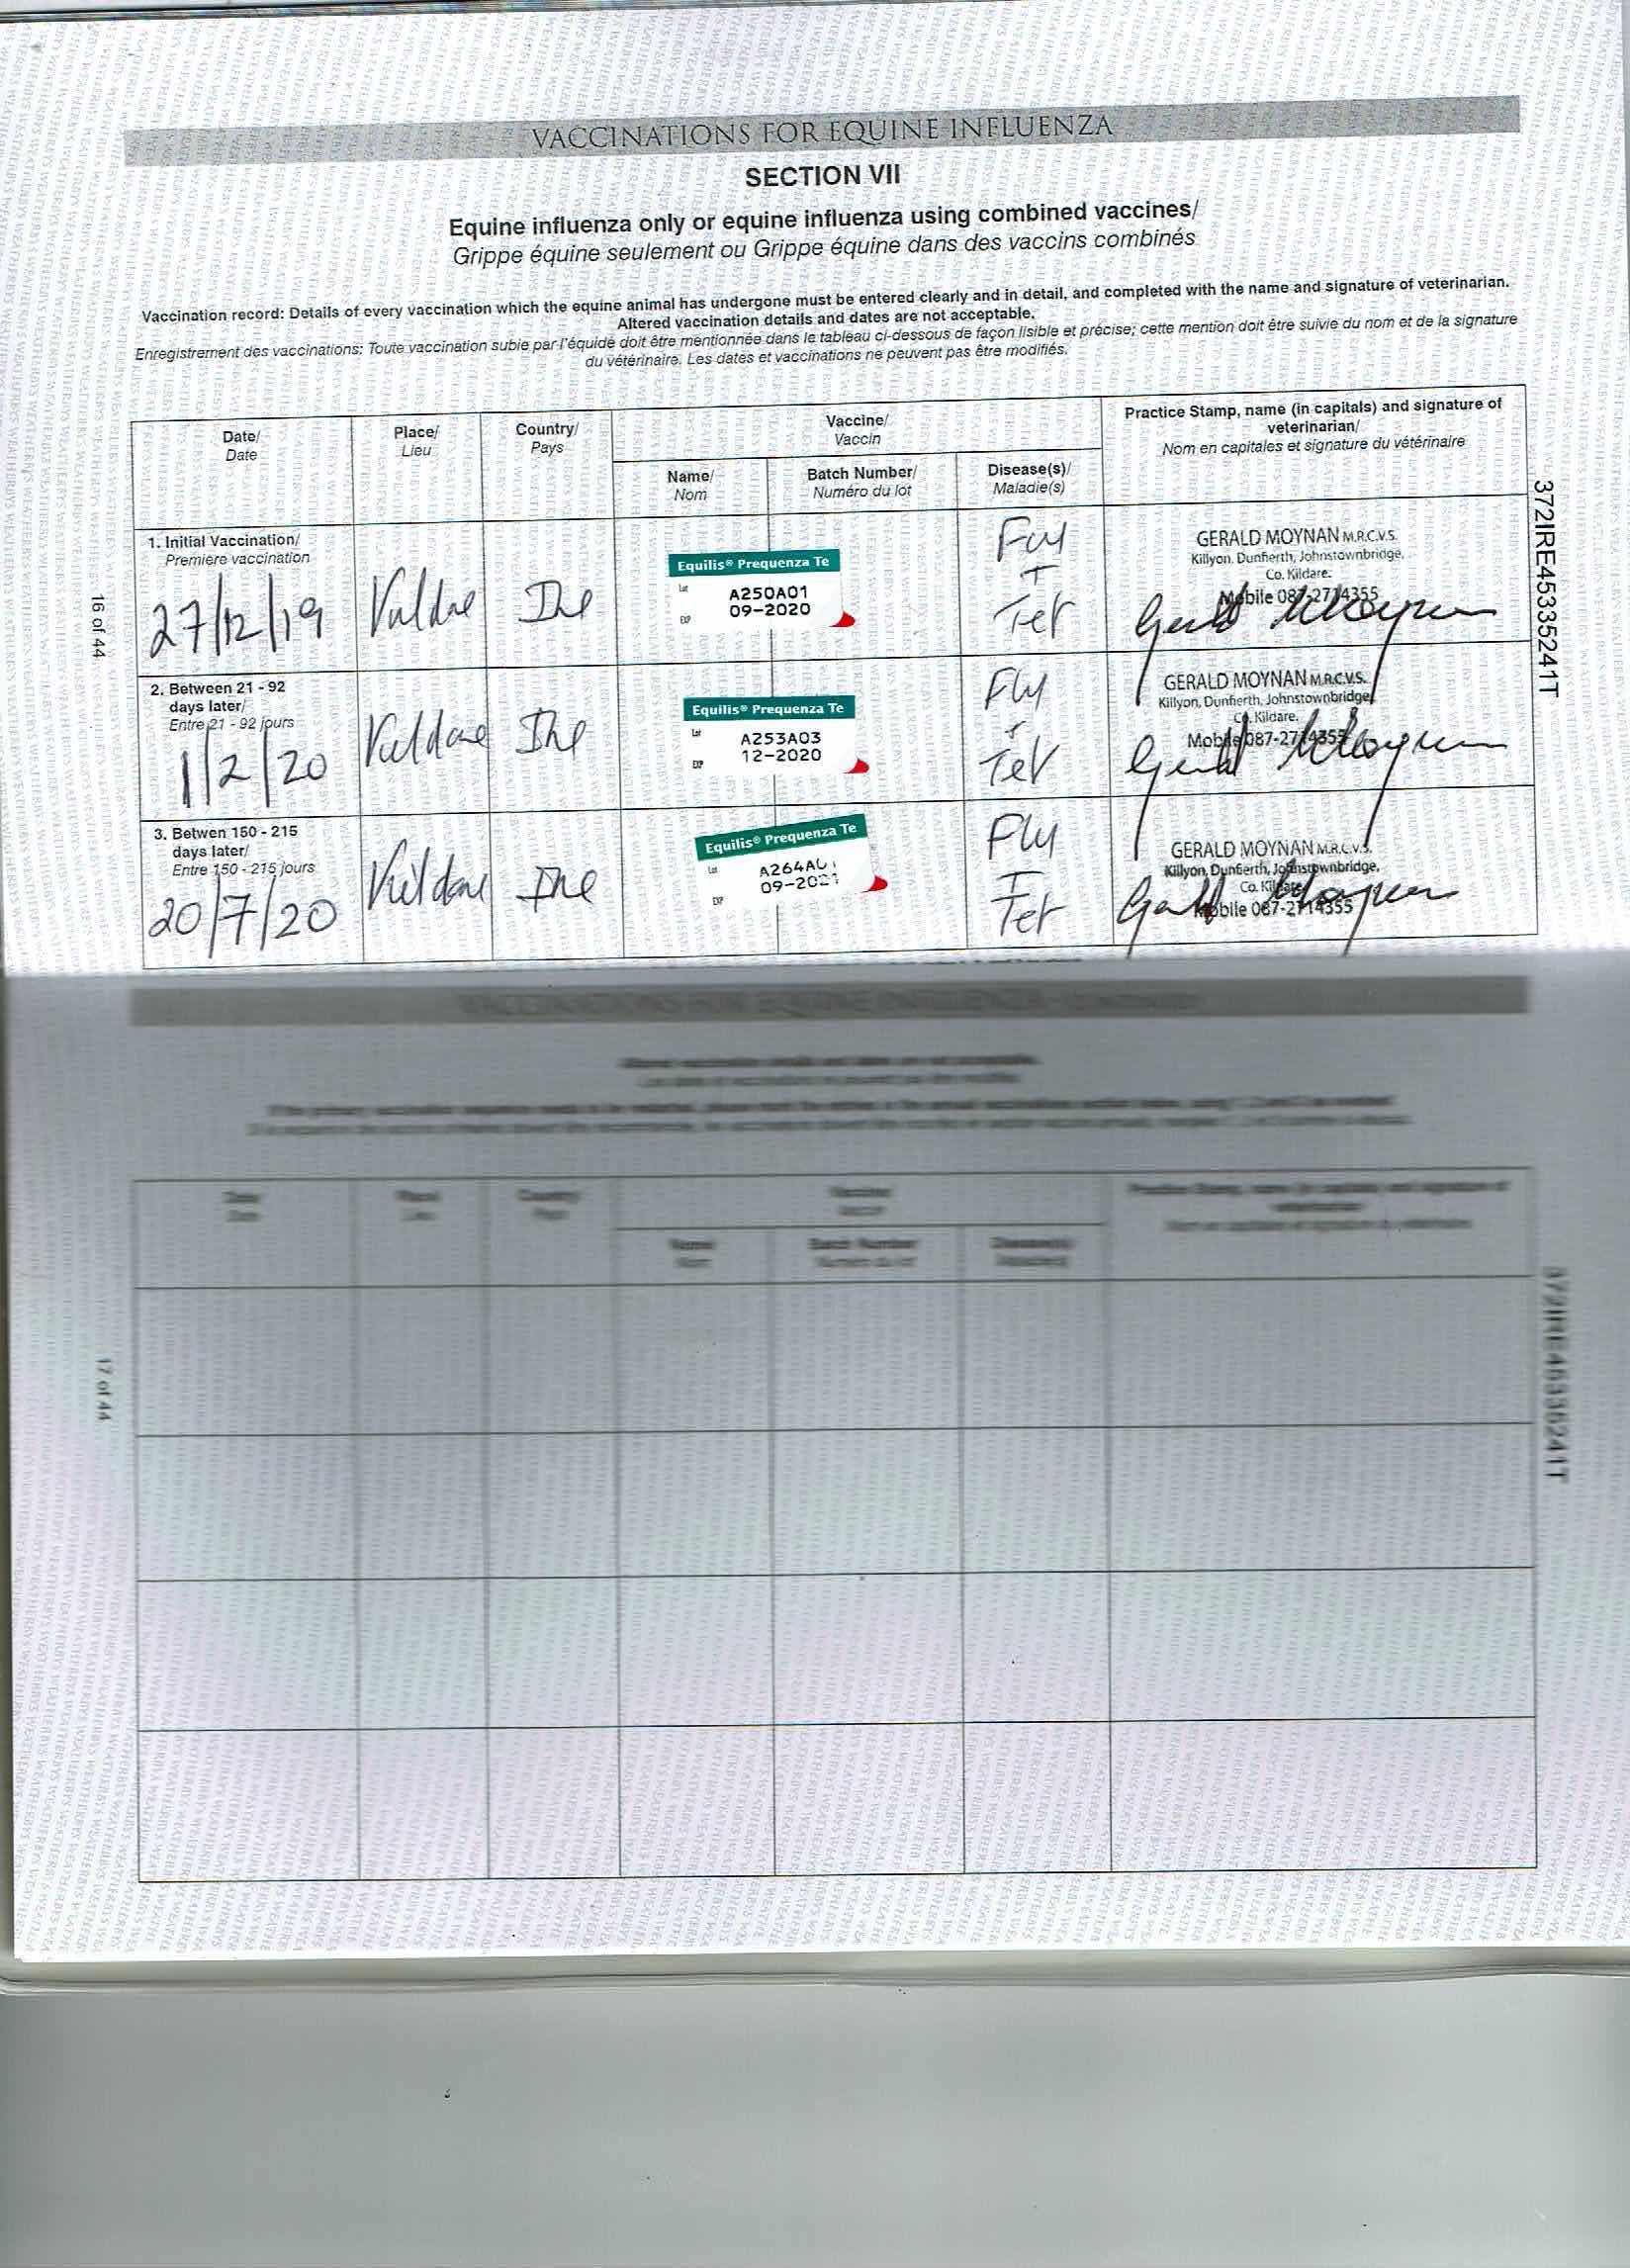 VACCINATIONS FOR EQUINE INFLUENZA
SECTION VII
Equine influenza only or equine influenza using combined vaccines/
Grippe équine seulement ou Grippe équine dans des vaccins combinés
Vaccination record: Details of every vaccination which the equine animal has undergone must be entered clearly and in detail, and completed with the name and signature of veterinarian.
Altered vaccination details and dates are not acceptable.
Enregistrement des vaccinations: Toute vaccination subie par l'équidé doit être mentionnée dans le tableau ci-dessous de façon lisible et précise; cette mention doit être suivie du nom et de la signature
du vétérinaire. Les dates et vaccinations ne peuvent pas être modifiés.
Date/
Date
Place/
Lieu
Country/
Pays
Vaccine/
Vaccin
Name/
Nom
Batch Number/
Numéro du lot
Disease(s)/
Maladie(s)
Practice Stamp, name (in capitals) and signature of
veterinarian/
Nom en capitales et signature du vétérinaire
1. Initial Vaccination/
Premiere vaccination
27/12/19
Kildare
Ire
Equilis® Prequenza Te
Lot
A250A01
EXP
09-2020
Flu
+
Tet
GERALD MOYNAN M.R.C.V.S.
Killyon, Dunfierth, Johnstownbridge,
Co. Kildare.
Mobile 087-2714355
Gerald Moynan
2. Between 21 - 92
days later/
Entre 21 - 92 jours
1/2/20
Kildare
Ire
Equilis® Prequenza Te
Lot
A253A03
EXP
12-2020
Flu
+
Tet
GERALD MOYNAN M.R.C.V.S.
Killyon, Dunfierth, Johnstownbridge,
Co. Kildare.
Mobile 087-2714355
Gerald Moynan
3. Betwen 150 - 215
days later/
Entre 150 - 215 jours
20/7/20
Kildare
Ire
Equilis® Prequenza Te
Lot
A264A01
EXP
09-2021
Flu
+
Tet
GERALD MOYNAN M.R.C.V.S.
Killyon, Dunfierth, Johnstownbridge,
Co. Kildare.
Mobile 087-2714355
Gerald Moynan
16 of 44
372IRE45335241T
Date/
Date
Place/
Lieu
Country/
Pays
Vaccine/
Vaccin
Name/
Nom
Batch Number/
Numéro du lot
Disease(s)/
Maladie(s)
17 of 44
372IRE45335241T